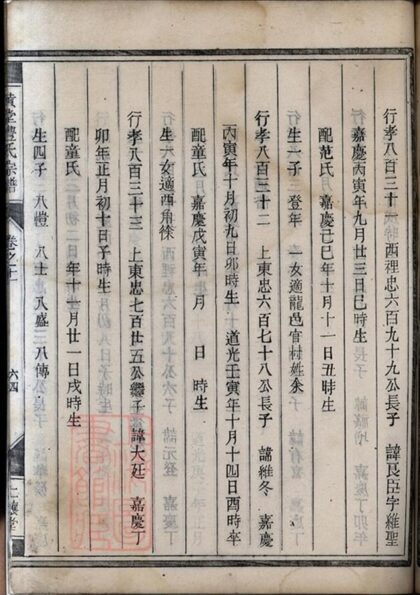 行孝八百三十一 西裡忠六百九十九公長子 諱良臣字維聖
嘉慶丙寅年九月廿三日巳時生
配范氏 嘉慶己巳年十月十一日丑時生
生一子 登年 一女適龍邑官村姓余
行孝八百三十二 上東忠六百七十八公長子 諱維冬 嘉慶
丙寅年十月初九日卯時生 道光壬寅年十月十四日酉時卒
配童氏 嘉慶戊寅年 月 日 時生
生一女適西角徐
行孝八百三十三 上東忠七百廿五公繼子 諱大延 嘉慶丁
卯年正月初十日子時生
配童氏 年十一月廿一日戌時生
生四子 八愷 八士 八盛 八傳
氏宗譜
卷之十一
六四